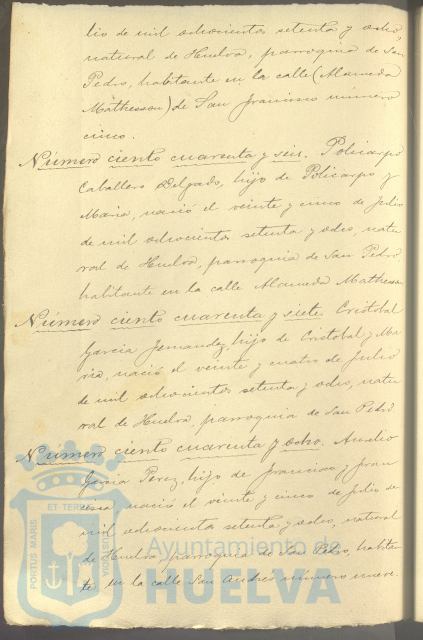 lio de mil ochocientos setenta y ocho,
natural de Huelva, parroquia de San
Pedro, habitante en la calle (Alameda
Mathesson) de San Francisco número
cinco.
Número ciento cuarenta y seis. Policarpo
Caballero Delgado, hijo de Policarpo y
María, nació el veinte y cinco de Julio
de mil ochocientos setenta y ocho, natu
ral de Huelva, parroquia de San Pedro
habitante en la calle Alameda Mathesson
Número ciento cuarenta y siete Cristobal
Garcia Fernandez, hijo de Cristobal y Ma
ria, nació el veinte y cuatro de Julio
de mil ochocientos setenta y ocho, natu
ral de Huelva, parroquia de San Pedro
Número ciento cuarenta y ocho. Aurelio
Garcia Perez, hijo de Francisco y Fran
cisca nació el veinte y cinco de Julio de
mil ochocientos setenta y ocho, natural
de Huelva, parroquia de San Pedro, habitan
te en la calle San Andrés número nueve.
PORTUS MARIS ET TERRAE CUSTODIA
Ayuntamiento de
HUELVA